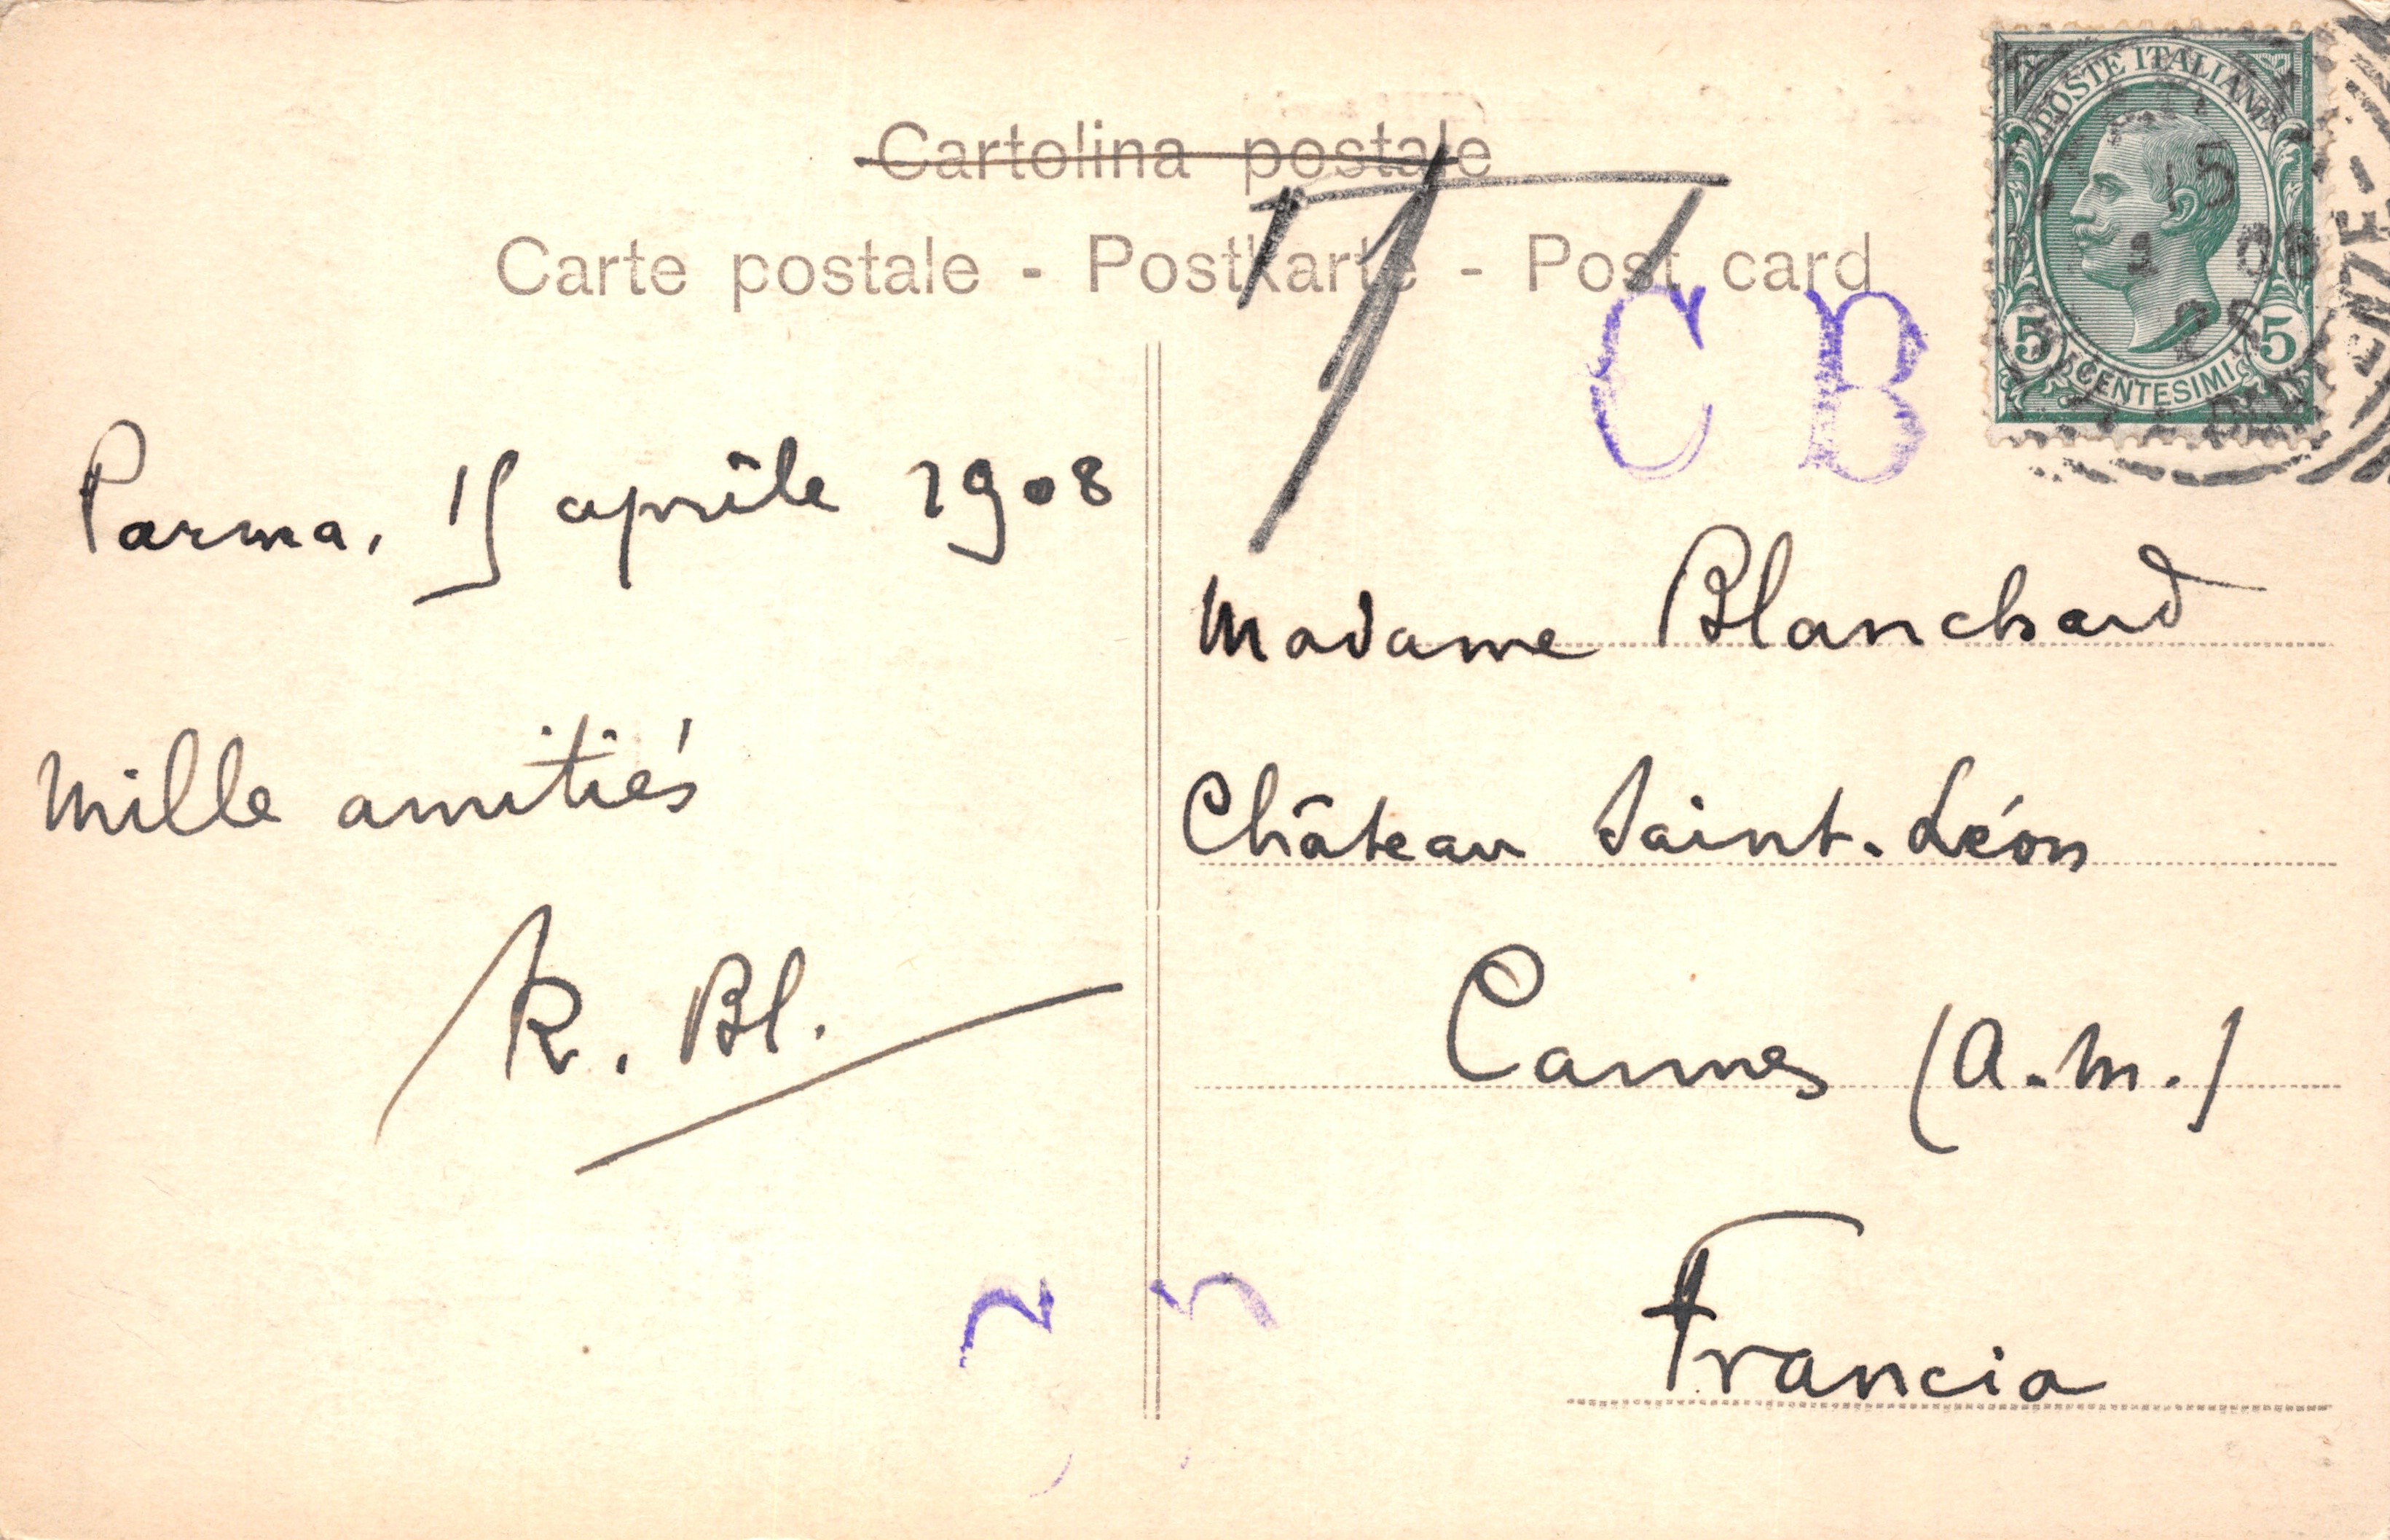 Cartolina postale
Carte postale - Postkarte - Post card
T
C B
POSTE ITALIANE
15
08
5 CENTESIMI 5
Parma, 15 aprile 1908
Mille amitiés
R. Bl.
Madame Blanchard
Château Saint-Léon
Cannes (A.M.)
Francia